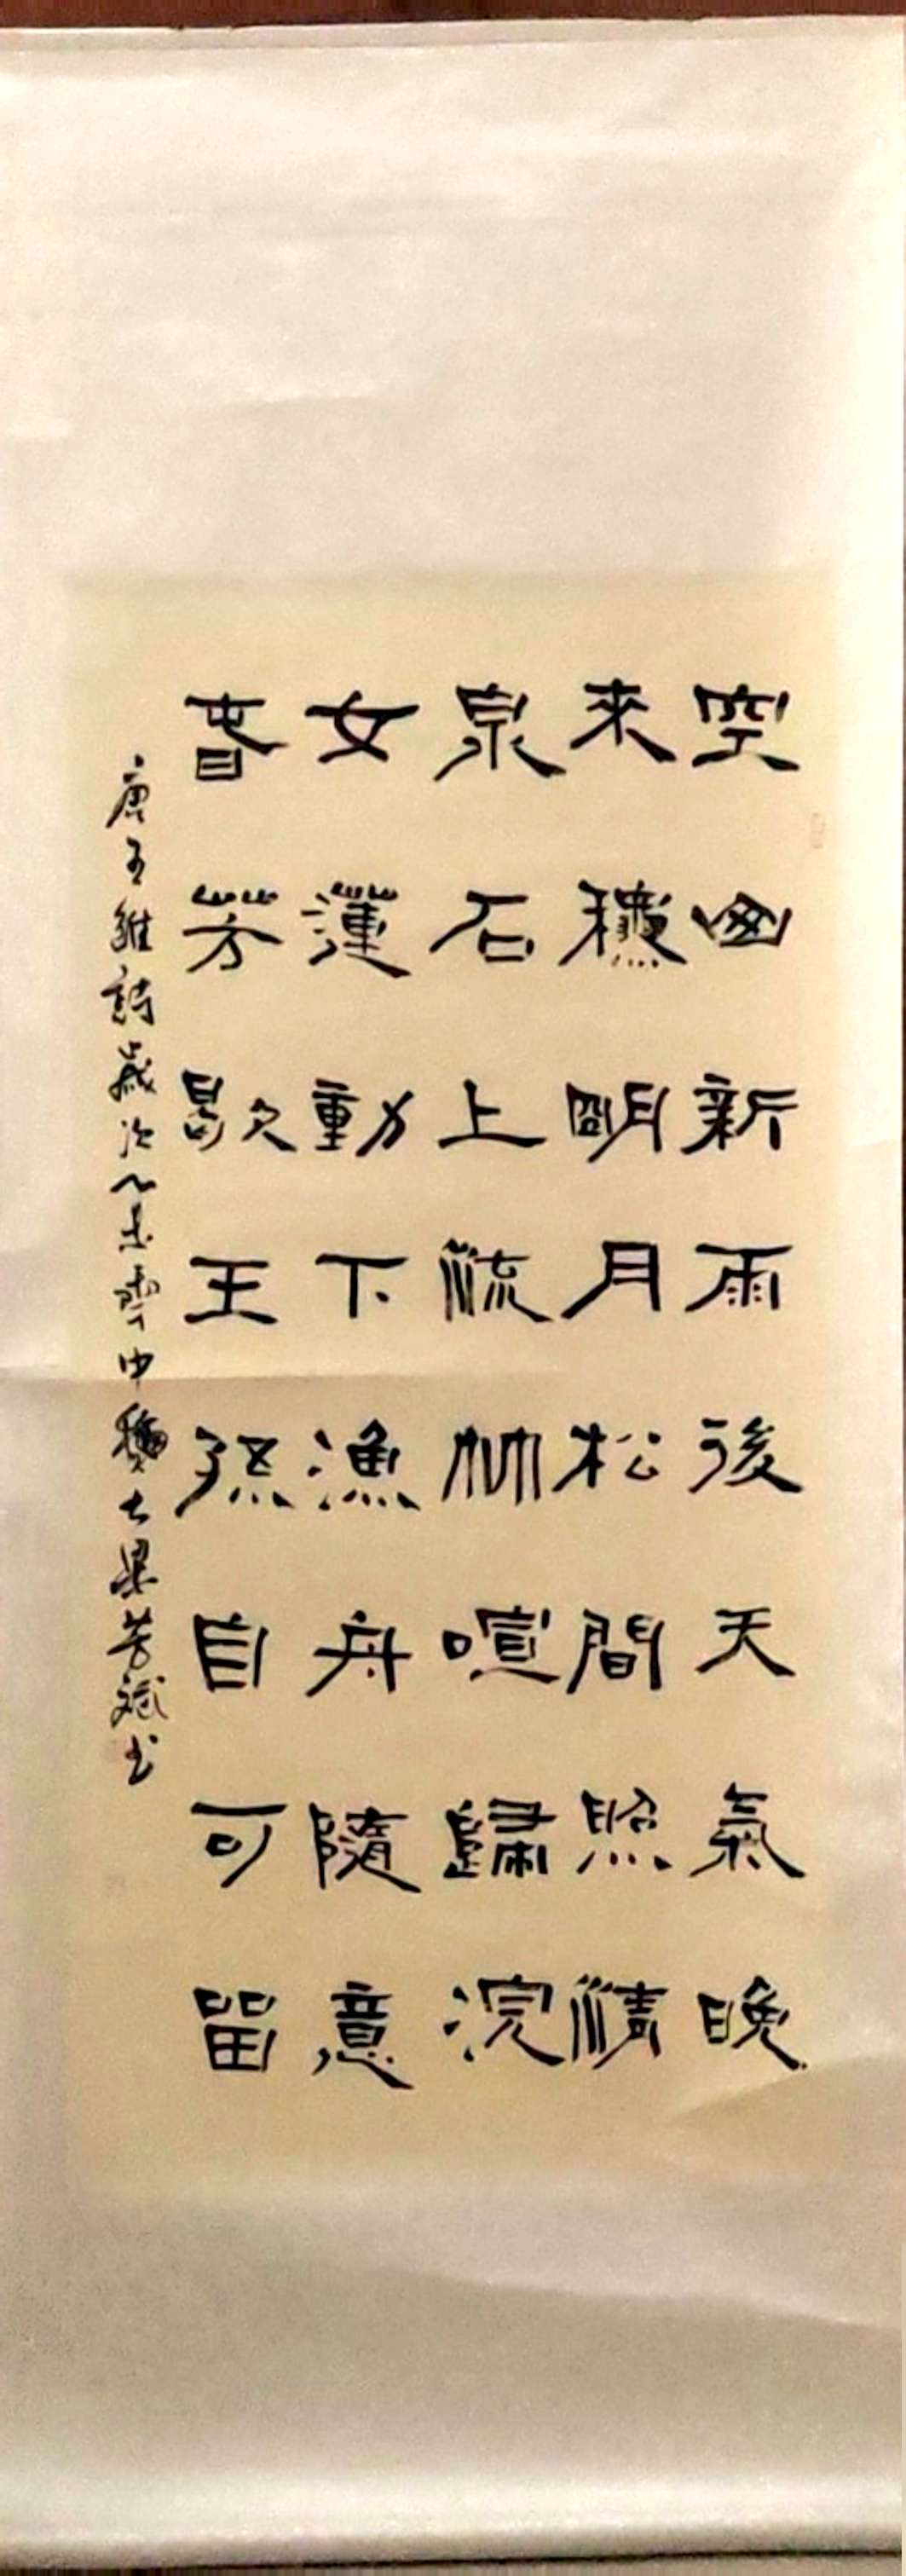 空山新雨後天氣晚
來龝明月松間照清
泉石上流竹喧歸浣
女蓮動下漁舟隨意
春芳歇王孫自可留
唐王維詩歲次乙未雲中士梁芳斌书